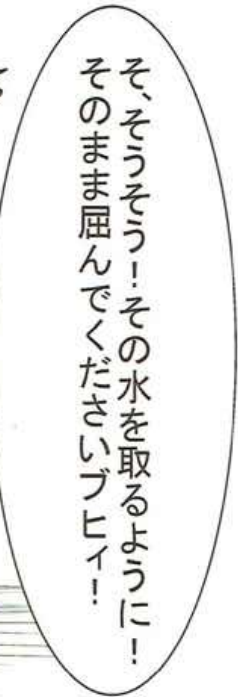 そ、そうそう！その水を取るように！
そのまま屈んでくださいブヒィ！